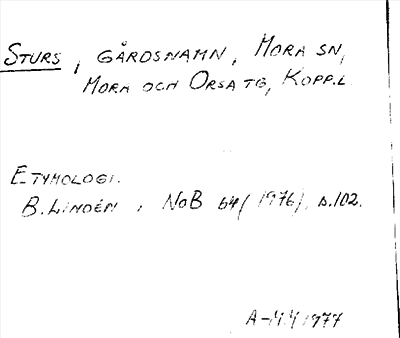 STURS, GÅRDSNAMN, MORA SN,
MORA OCH ORSA TG, KOPP.L
ETYMOLOGI.
B. LINDÉN i NoB 64 (1976), s. 102.
A-M.Y 1977